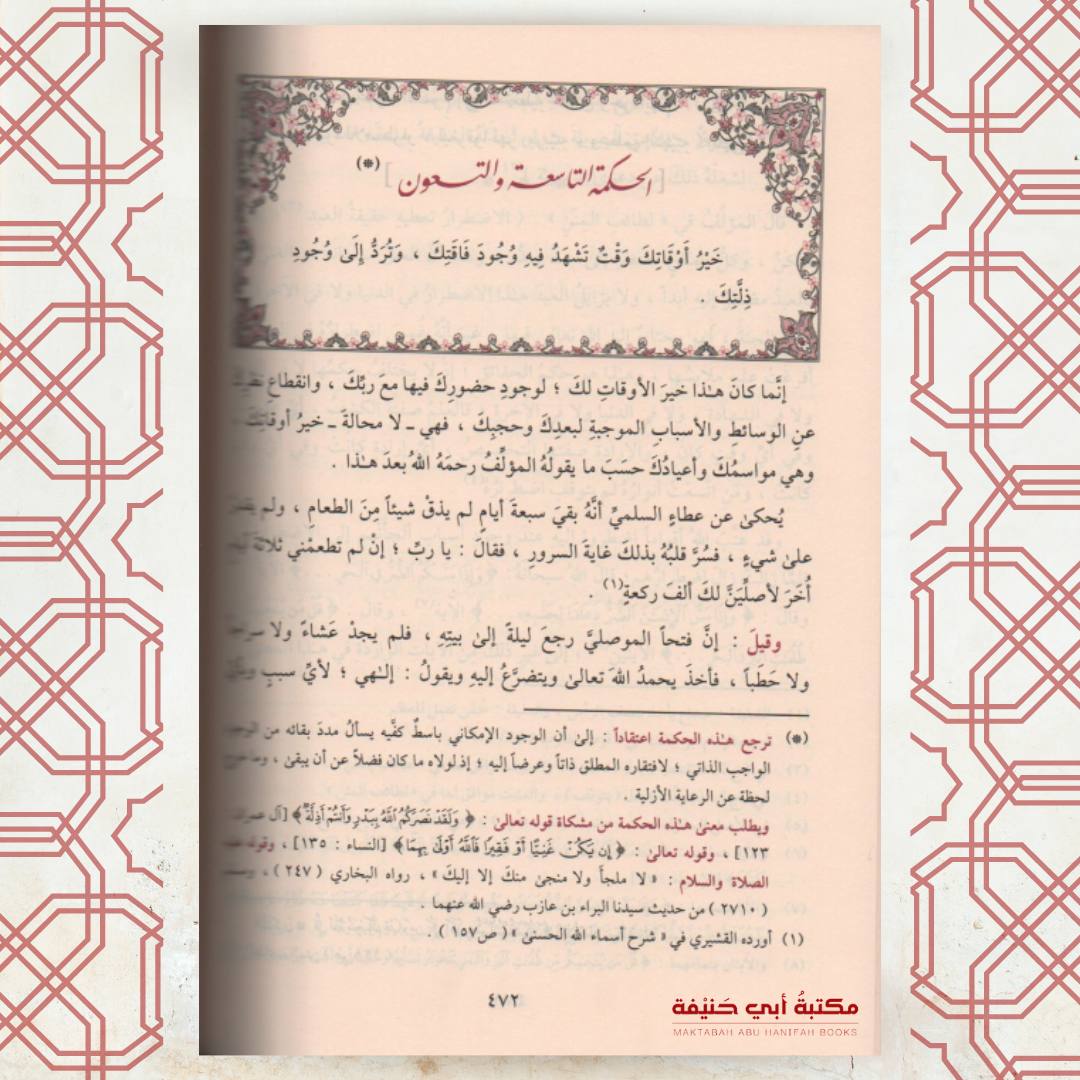 الحكمة التاسعة والتسعون (*)
خَيْرُ أَوْقَاتِكَ وَقْتٌ تَشْهَدُ فِيهِ وُجُودَ فَاقَتِكَ ، وَتُرَدُّ إِلَىٰ وُجُودِ
ذِلَّتِكَ .
إنَّما كانَ هـٰذا خيرَ الأوقاتِ لكَ ؛ لوجودِ حضورِكَ فيها مع ربِّكَ ، وانقطاعِ نظرِكَ
عنِ الوسائط والأسبابِ الموجبةِ لبعدِكَ وحجبِكَ ، فهي ـ لا محالةَ ـ خيرُ أوقاتِكَ ،
وهي مواسمُكَ وأعيادُكَ حسَبَ ما يقولُهُ المؤلِّفُ رحمَهُ اللهُ بعدَ هـٰذا .
يُحكىٰ عن عطاءٍ السلميِّ أنَّهُ بقيَ سبعةَ أيامٍ لم يذقْ شيئاً مِنَ الطعامِ ، ولم يقدرْ
علىٰ شيءٍ ، فسُرَّ قلبُهُ بذلكَ غايةَ السرورِ ، فقالَ : يا ربِّ ؛ إنْ لم تطعمْني ثلاثةَ أيامٍ
أُخَرَ لأصلِّيَنَّ لكَ ألفَ ركعةٍ (١) .
وقيلَ : إنَّ فتحاً الموصليَّ رجعَ ليلةً إلىٰ بيتِهِ ، فلم يجدْ عَشاءً ولا سراجاً
ولا حَطَباً ، فأخذَ يحمدُ اللهَ تعالىٰ ويتضرَّعُ إليهِ ويقولُ : إلـٰهي ؛ لأيِّ سببٍ
(*) ترجع هـٰذه الحكمة اعتقاداً : إلىٰ أن الوجود الإمكاني باسطٌ كفَّيه يسألُ مددَ بقائه من الوجود
الواجب الذاتي ؛ لافتقاره المطلق ذاتاً وعرضاً إليه ؛ إذ لولاه ما كان فضلاً عن أن يبقىٰ ،
لحظة عن الرعاية الأزلية .
ويطلب معنىٰ هـٰذه الحكمة من مشكاة قوله تعالىٰ : ﴿ وَلَقَدْ نَصَرَكُمُ ٱللَّهُ بِبَدْرٍ وَأَنتُمْ أَذِلَّةٌ ﴾ [آل عمران :
١٢٣] ، وقوله تعالىٰ : ﴿ إِن يَكُنْ غَنِيًّا أَوْ فَقِيرًا فَٱللَّهُ أَوْلَىٰ بِهِمَا ﴾ [النساء : ١٣٥] ، وقوله عليه
الصلاة والسلام : « لا ملجأ ولا منجىٰ منكَ إلا إليكَ » ، رواه البخاري ( ٢٤٧ ) ، ومسلم
( ٢٧١٠ ) من حديث سيدنا البراء بن عازب رضي الله عنهما .
(١) أورده القشيري في « شرح أسماء الله الحسنىٰ » ( ص١٥٧ ) .
٤٧٢
مكتبةُ أبي حَنيْفة
MAKTABAH ABU HANIFAH BOOKS